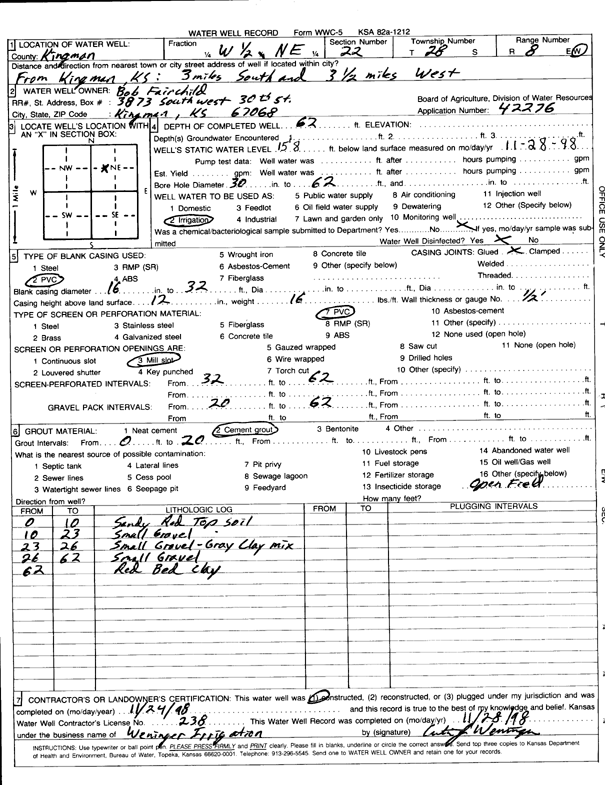 WATER WELL RECORD Form WWC-5 KSA 82a-1212
1 LOCATION OF WATER WELL: Fraction Section Number Township Number Range Number
County: Kingman ¼ W ½ ¼ NE ¼ 22 T 28 S R 8 E(W)
Distance and direction from nearest town or city street address of well if located within city?
From Kingman KS: 3 miles South and 3 1/2 miles West
2 WATER WELL OWNER: Bob Fairchild
RR#, St. Address, Box # : 3873 Southwest 30th St. Board of Agriculture, Division of Water Resources
City, State, ZIP Code : Kingman, KS 67068 Application Number: 42276
3 LOCATE WELL'S LOCATION WITH AN "X" IN SECTION BOX:
N
NW X NE
W E
SW SE
S
1 Mile
4 DEPTH OF COMPLETED WELL 62 ft. ELEVATION:
Depth(s) Groundwater Encountered 1 ft. 2 ft. 3 ft.
WELL'S STATIC WATER LEVEL 15'8 ft. below land surface measured on mo/day/yr 11-28-98
Pump test data: Well water was ft. after hours pumping gpm
Est. Yield gpm: Well water was ft. after hours pumping gpm
Bore Hole Diameter 30 in. to 62 ft., and in. to ft.
WELL WATER TO BE USED AS: 5 Public water supply 8 Air conditioning 11 Injection well
1 Domestic 3 Feedlot 6 Oil field water supply 9 Dewatering 12 Other (Specify below)
2 Irrigation 4 Industrial 7 Lawn and garden only 10 Monitoring well
Was a chemical/bacteriological sample submitted to Department? Yes No X If yes, mo/day/yr sample was submitted
Water Well Disinfected? Yes X No
5 TYPE OF BLANK CASING USED: 5 Wrought iron 8 Concrete tile CASING JOINTS: Glued X Clamped
1 Steel 3 RMP (SR) 6 Asbestos-Cement 9 Other (specify below) Welded
2 PVC 4 ABS 7 Fiberglass Threaded
Blank casing diameter 16 in. to 32 ft., Dia in. to ft., Dia in. to ft.
Casing height above land surface 12 in., weight 16 lbs./ft. Wall thickness or gauge No. 1/2"
TYPE OF SCREEN OR PERFORATION MATERIAL: 7 PVC 10 Asbestos-cement
1 Steel 3 Stainless steel 5 Fiberglass 8 RMP (SR) 11 Other (specify)
2 Brass 4 Galvanized steel 6 Concrete tile 9 ABS 12 None used (open hole)
SCREEN OR PERFORATION OPENINGS ARE: 5 Gauzed wrapped 8 Saw cut 11 None (open hole)
1 Continuous slot 3 Mill slot 6 Wire wrapped 9 Drilled holes
2 Louvered shutter 4 Key punched 7 Torch cut 10 Other (specify)
SCREEN-PERFORATED INTERVALS: From 32 ft. to 62 ft., From ft. to ft.
From ft. to ft., From ft. to ft.
GRAVEL PACK INTERVALS: From 20 ft. to 62 ft., From ft. to ft.
From ft. to ft., From ft. to ft.
6 GROUT MATERIAL: 1 Neat cement 2 Cement grout 3 Bentonite 4 Other
Grout Intervals: From 0 ft. to 20 ft., From ft. to ft., From ft. to ft.
What is the nearest source of possible contamination: 10 Livestock pens 14 Abandoned water well
1 Septic tank 4 Lateral lines 7 Pit privy 11 Fuel storage 15 Oil well/Gas well
2 Sewer lines 5 Cess pool 8 Sewage lagoon 12 Fertilizer storage 16 Other (specify below)
3 Watertight sewer lines 6 Seepage pit 9 Feedyard 13 Insecticide storage Open Field
Direction from well? How many feet?
FROM TO LITHOLOGIC LOG FROM TO PLUGGING INTERVALS
0 10 Sandy Red Top soil
10 23 Small Gravel
23 26 Small Gravel-Gray Clay mix
26 62 Small Gravel
62 Red Bed Clay
7 CONTRACTOR'S OR LANDOWNER'S CERTIFICATION: This water well was (1) constructed, (2) reconstructed, or (3) plugged under my jurisdiction and was
completed on (mo/day/year) 11/24/98 and this record is true to the best of my knowledge and belief. Kansas
Water Well Contractor's License No. 238 This Water Well Record was completed on (mo/day/yr) 11/28/98
under the business name of Weninger Irrigation by (signature) Weninger
INSTRUCTIONS: Use typewriter or ball point pen. PLEASE PRESS FIRMLY and PRINT clearly. Please fill in blanks, underline or circle the correct answers. Send top three copies to Kansas Department
of Health and Environment, Bureau of Water, Topeka, Kansas 66620-0001. Telephone: 913-296-5545. Send one to WATER WELL OWNER and retain one for your records.
OFFICE USE ONLY